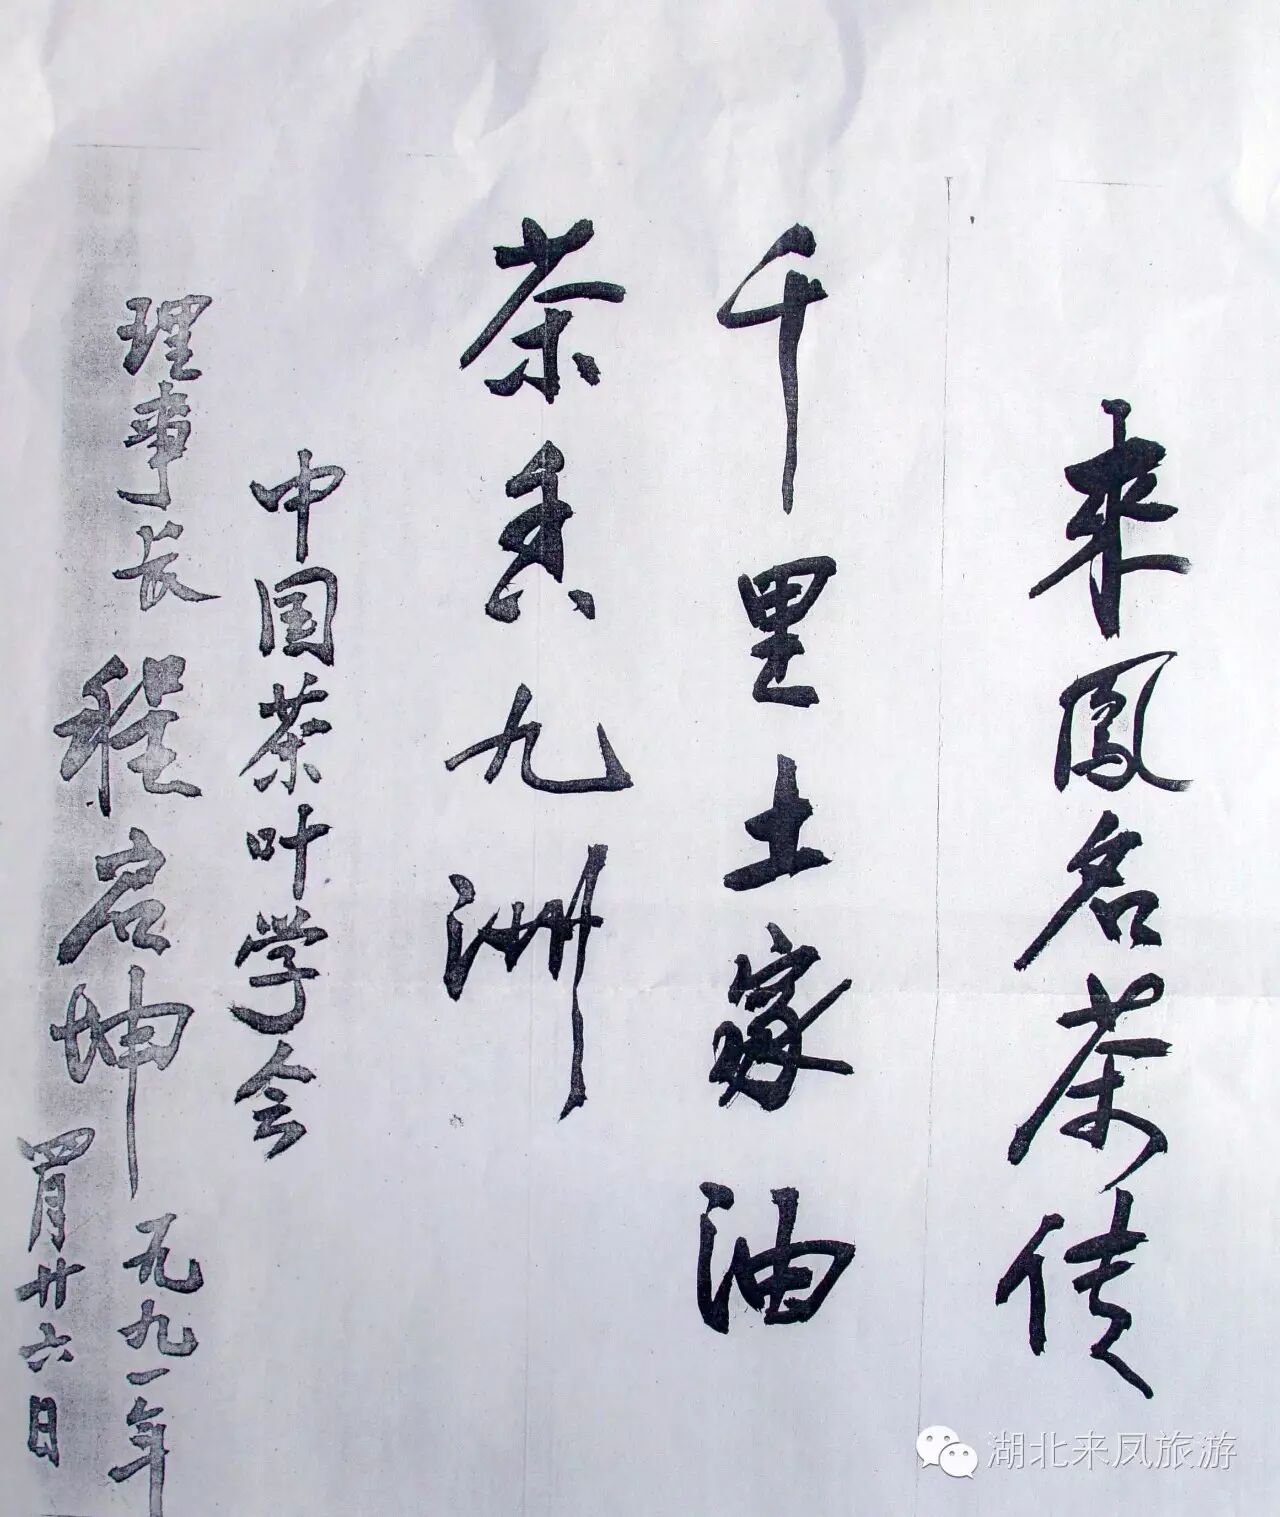 来鳳名茶传
千里土家油
茶香九洲
中国茶叶学会
理事长程启坤
一九九一年
四月廿六日
湖北来凤旅游